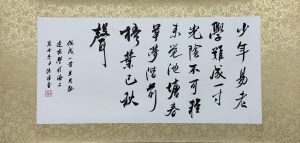 少年易老
學難成一寸
光陰不可輕
未覺池塘春
草夢階前
梧葉已秋
聲